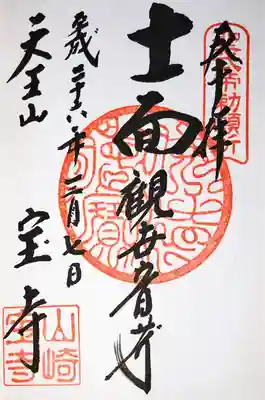 奉拝
十一面観世音菩薩
平成二十六年三月七日
天王山
宝寺
山崎
宝寺